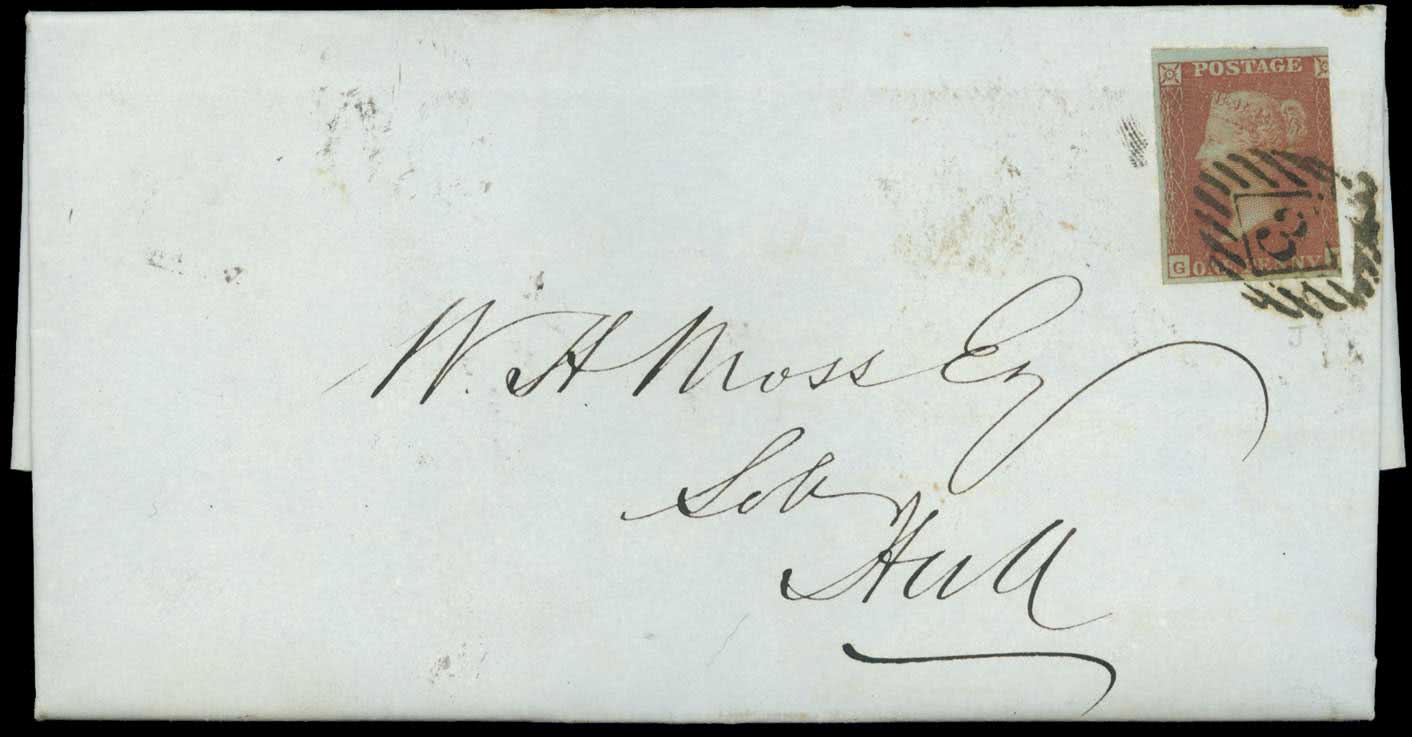 POSTAGE
G ONE PENNY
33
W. H. Moss Esq
Solr
Hull
J